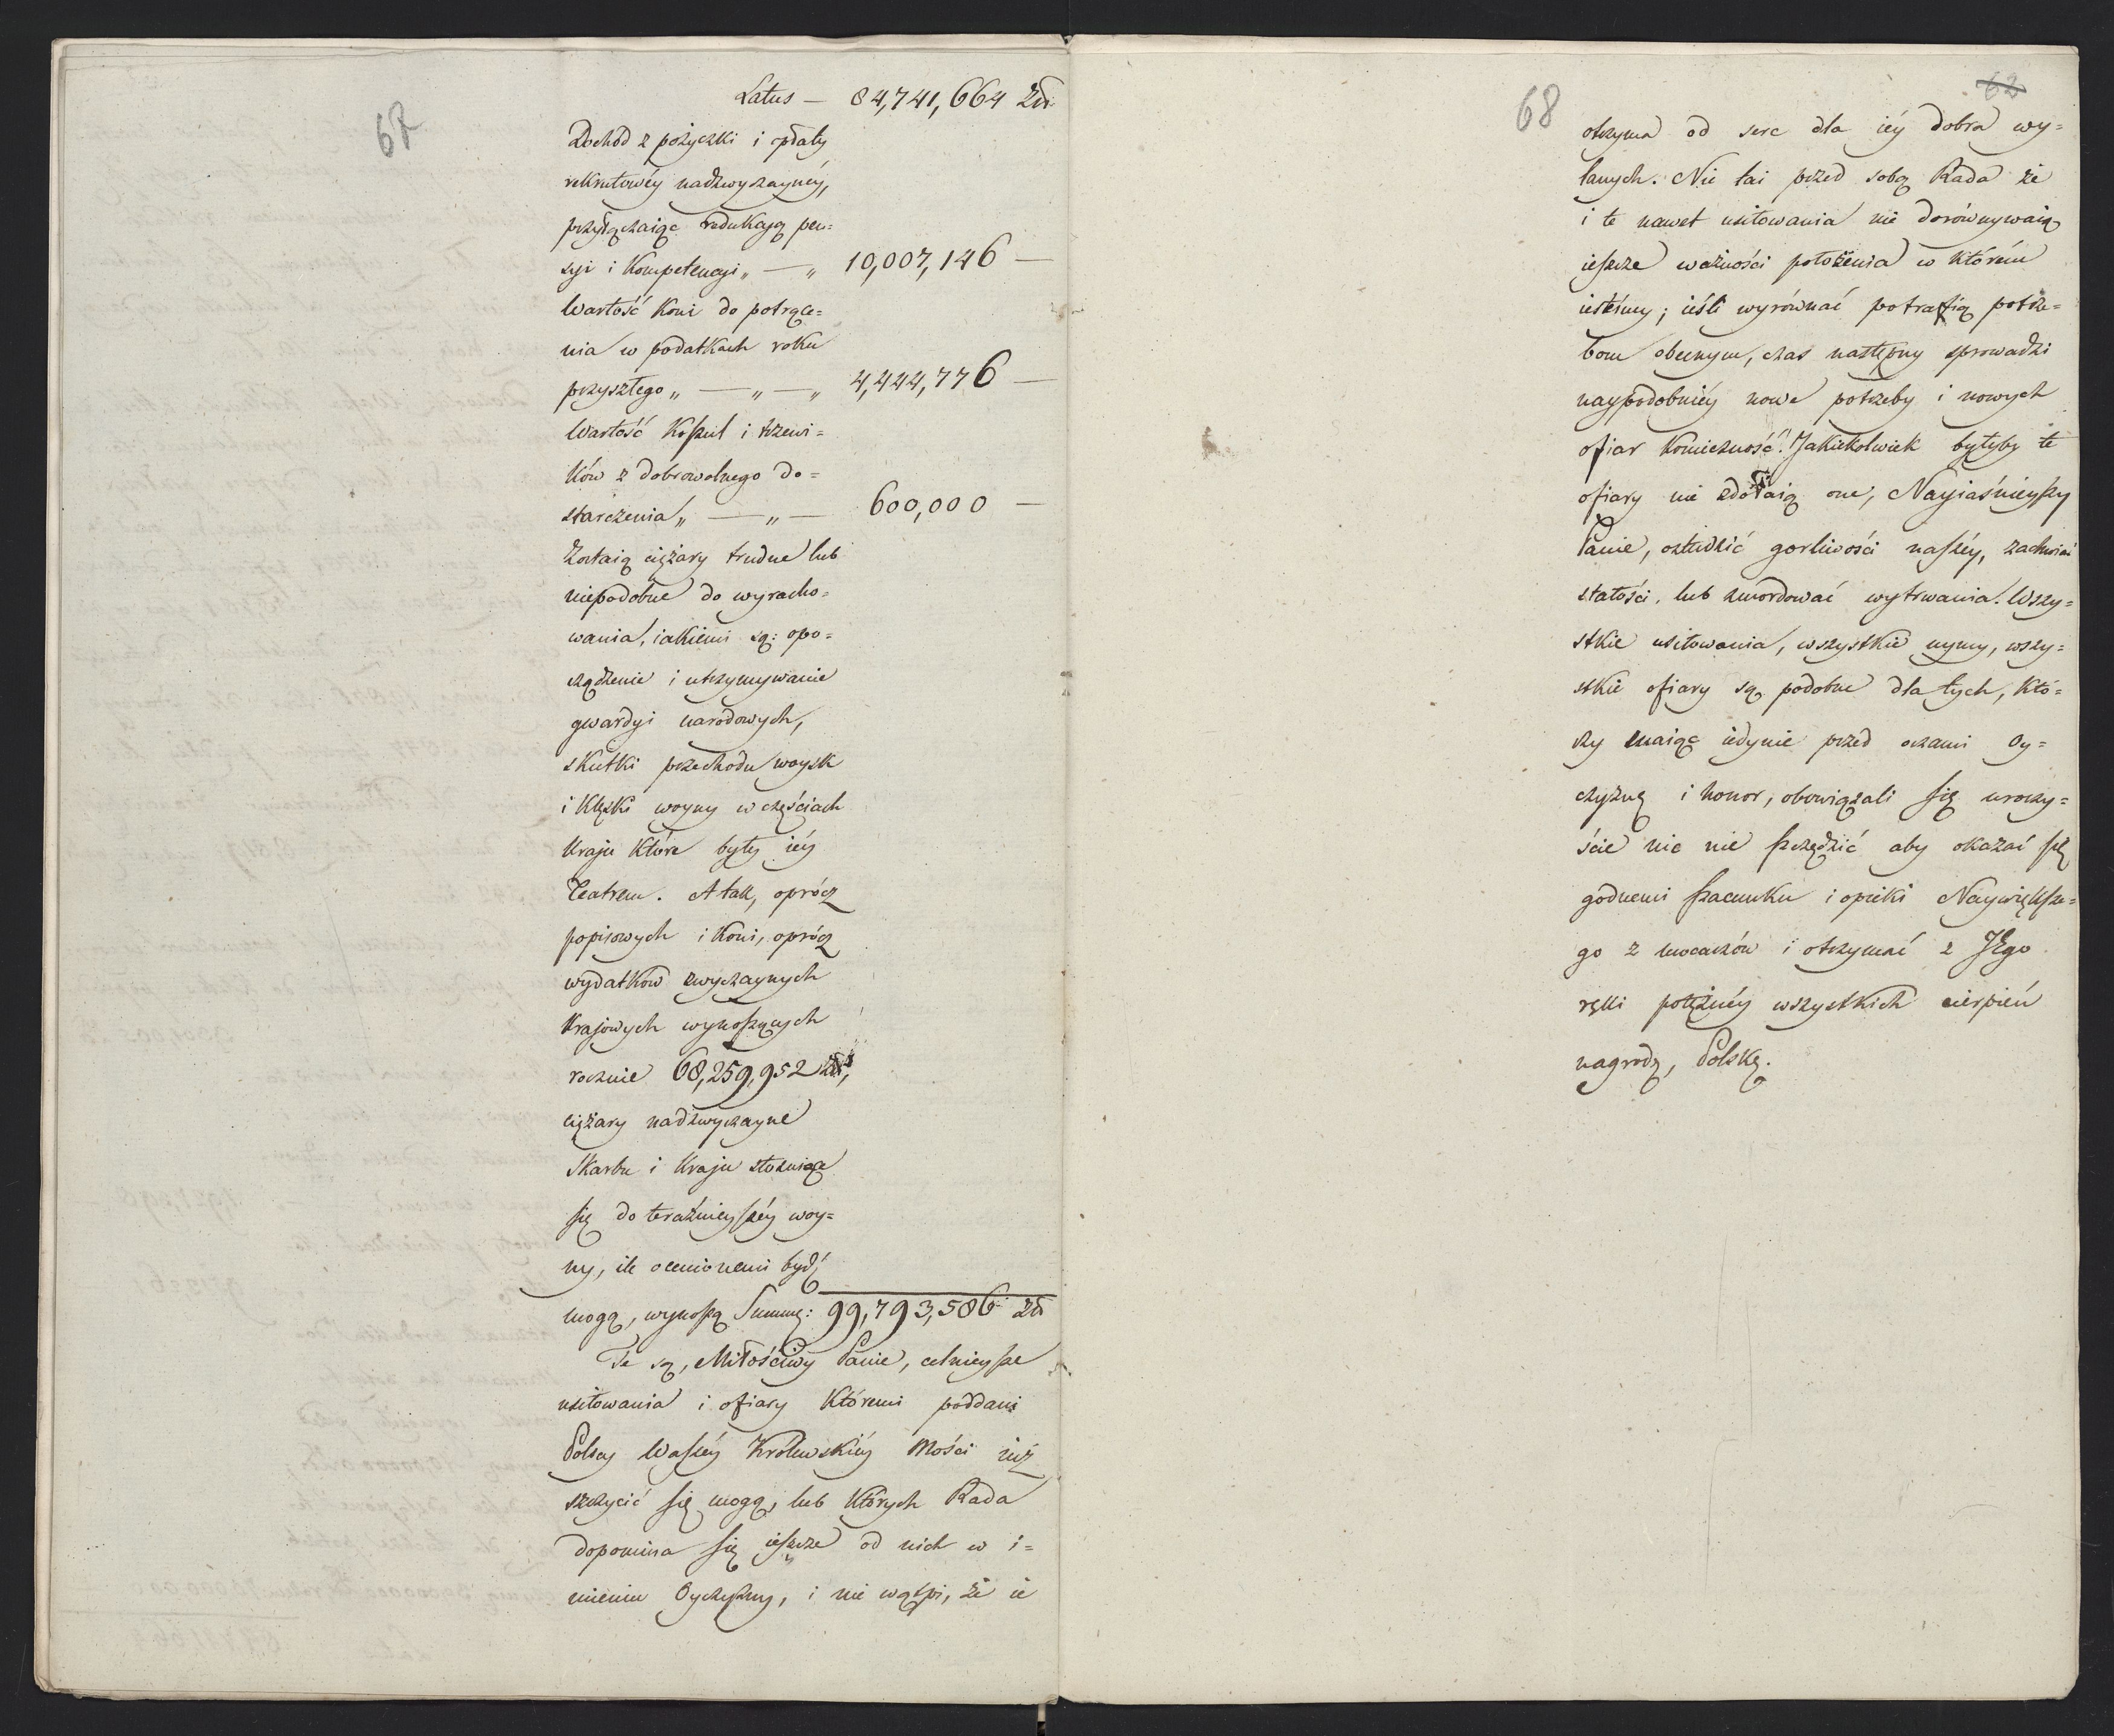 67
Latus — 84,741,664 Złt:
Dochód z pożyczki i opłaty
rekrutowéy nadzwyczaynéy,
przyłączaiąc redukcyą pen=
syi i kompetencyi „ — „ 10,007,146 —
Wartość koni do potrące=
nia w podatkach roku
przyszłego „ — „ — „ 4,444,776 —
Wartość koszul i trzewi=
ków z dobrowolnego do=
starczenia „ — „ — 600,000 —
Zostaią ciężary trudne lub
niepodobne do wyracho=
wania, iakiemi są: opo=
rządzenie i utrzymywanie
gwardyi narodowych,
skutki przechodu woysk
i klęski woyny w częściach
kraju które były iéy
teatrem. A tak, oprócz
popisowych i koni, oprócz
wydatków zwyczaynych
krajowych wynoszących
rocznie 68,259,952 złt,
ciężary nadzwyczayne
Skarbu i kraju stosuiące
się do teraźnieyszéy woy=
ny, ile ocenionemi bydź
mogą, wynoszą Summę: 99,793,586 Złt
Te są, Miłościwy Panie, celnieysze
usiłowania i ofiary któremi poddani
Polscy Waszéy Królewskiéy Mości iuż
szczycić się mogą, lub których Rada
dopomina się ieszcze od nich w i=
mieniu Oyczyzny, i nie wątpi, że ie
68
62
otrzyma od serc dla iéy dobra wy=
lanych. Nie tai przed sobą Rada że
i te nawet usiłowania nie dorównywaią
ieszcze ważności położenia w którém
iesteśmy; ieśli wyrównać potrafią potrze=
bom obecnym, czas następny sprowadzi
naypodobniéy nowe potrzeby i nowych
ofiar konieczność. Jakiekolwiek byłyby te
ofiary nie zdołaią one, Nayiaśnieyszy
Panie, ostudzić gorliwości naszéy, zachwiać
stałości, lub zmordować wytrwania. Wszy=
stkie usiłowania, wszystkie uymy, wszy=
stkie ofiary są podobne dla tych, któ=
rzy maiąc iedynie przed oczami Oy=
czyznę i honor, obowiązali się uroczy=
ście nic nie szczędzić aby okazać się
godnemi szacunku i opieki Naywiększe=
go z mocarzów i otrzymać z JEgo
ręki potężnéy wszystkich cierpień
nagrodę, Polskę.